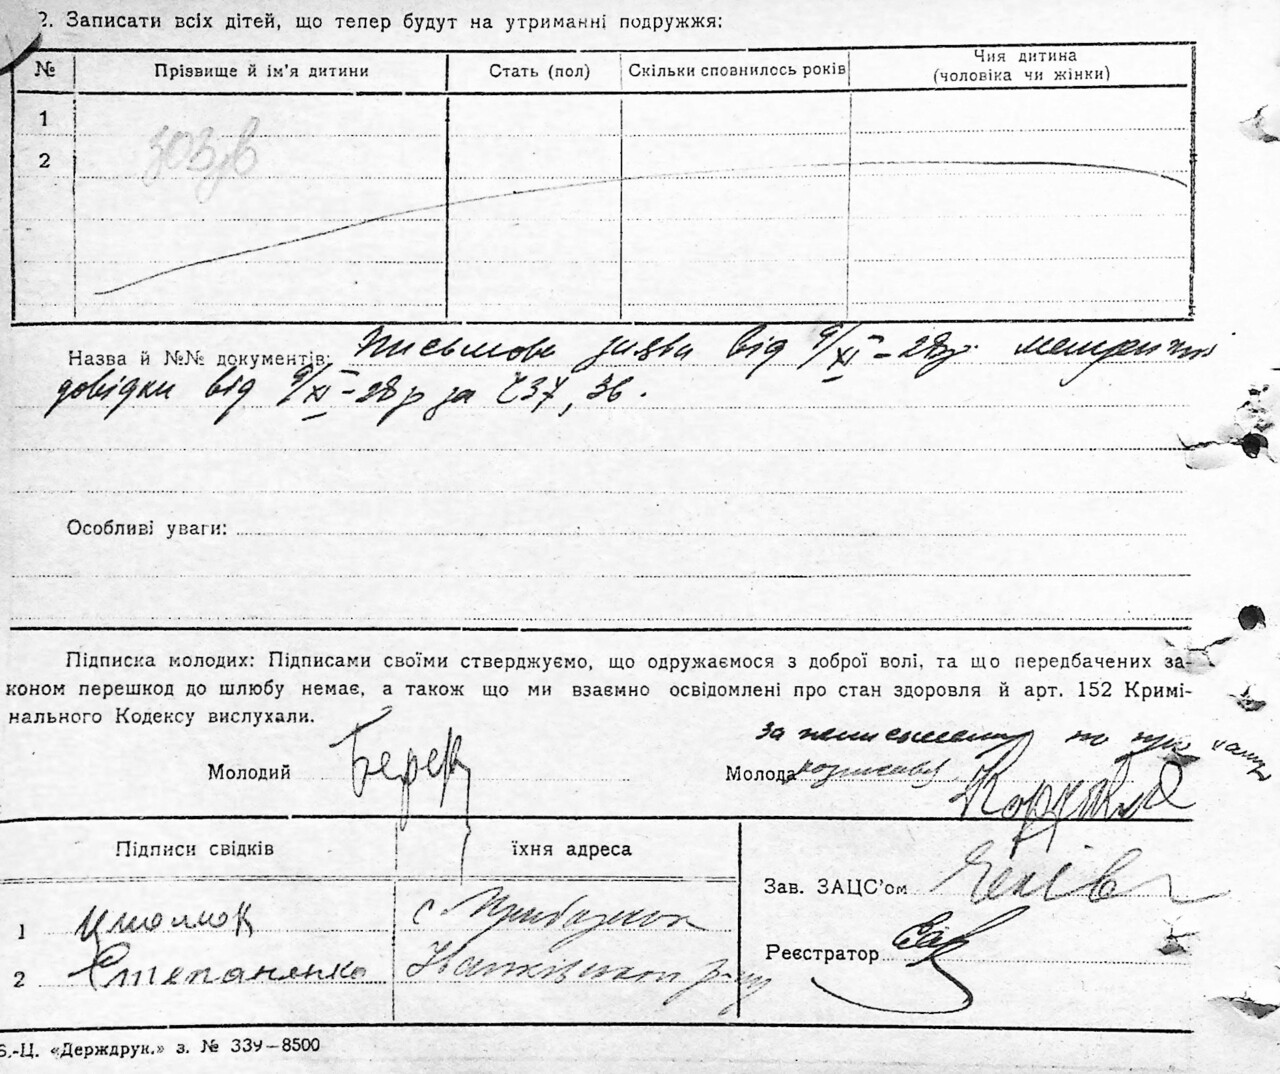 2. Записати всіх дітей, що тепер будут на утриманні подружжя:
№ Прізвище й ім'я дитини Стать (пол) Скільки сповнилось років Чия дитина (чоловіка чи жінки)
1
2
Назва й №№ документів: Письмова заява від 9/XI-28 р.
довідки від 9/XI-28 р за Ч 37, 36.
Особливі уваги:
Підписка молодих: Підписами своїми стверджуємо, що одружаємося з доброї волі, та що передбачених за-
коном перешкод до шлюбу немає, а також що ми взаємно освідомлені про стан здоровля й арт. 152 Кримі-
нального Кодексу вислухали.
за неписьмену по
Молодий Молода
Підписи свідків їхня адреса
Зав. ЗАЦС'ом
1 с
Реєстратор
2 Степаненко
Б.-Ц. «Держдрук.» з. № 339—8500